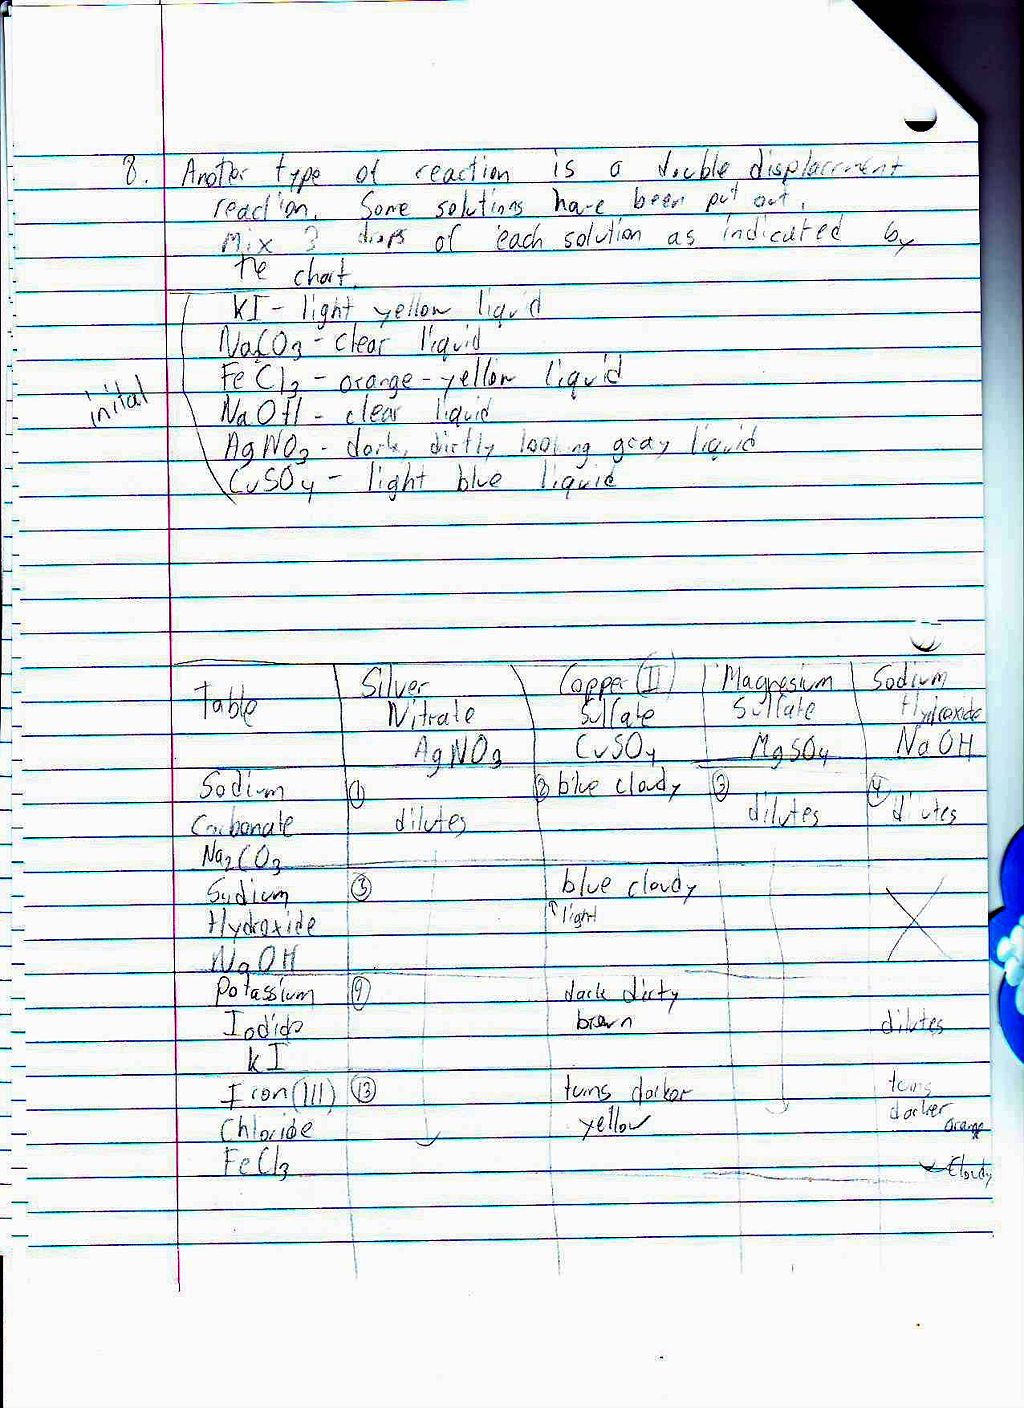 8. Another type of reaction is a double displacement
reaction. Some solutions have been put out.
Mix 3 drops of each solution as indicated by
the chart.
KI - light yellow liquid
Na2CO3 - clear liquid
FeCl3 - orange-yellow liquid
inital
NaOH - clear liquid
AgNO3 - dark, dirtly looking gray liquid
CuSO4 - light blue liquid
Table
Silver
Nitrate
AgNO3
Copper (II)
Sulfate
CuSO4
Magnesium
Sulfate
MgSO4
Sodium
Hydroxide
NaOH
Sodium
Carbonate
Na2CO3
① dilutes
② blue cloudy
③ dilutes
④ dilutes
Sodium
Hydroxide
NaOH
③
blue cloudy
↑ light
Potassium
Iodide
KI
⑨
dark dirty
brown
dilutes
Iron (III)
Chloride
FeCl3
⑬
turns darker
yellow
turns
darker
orange
cloudy